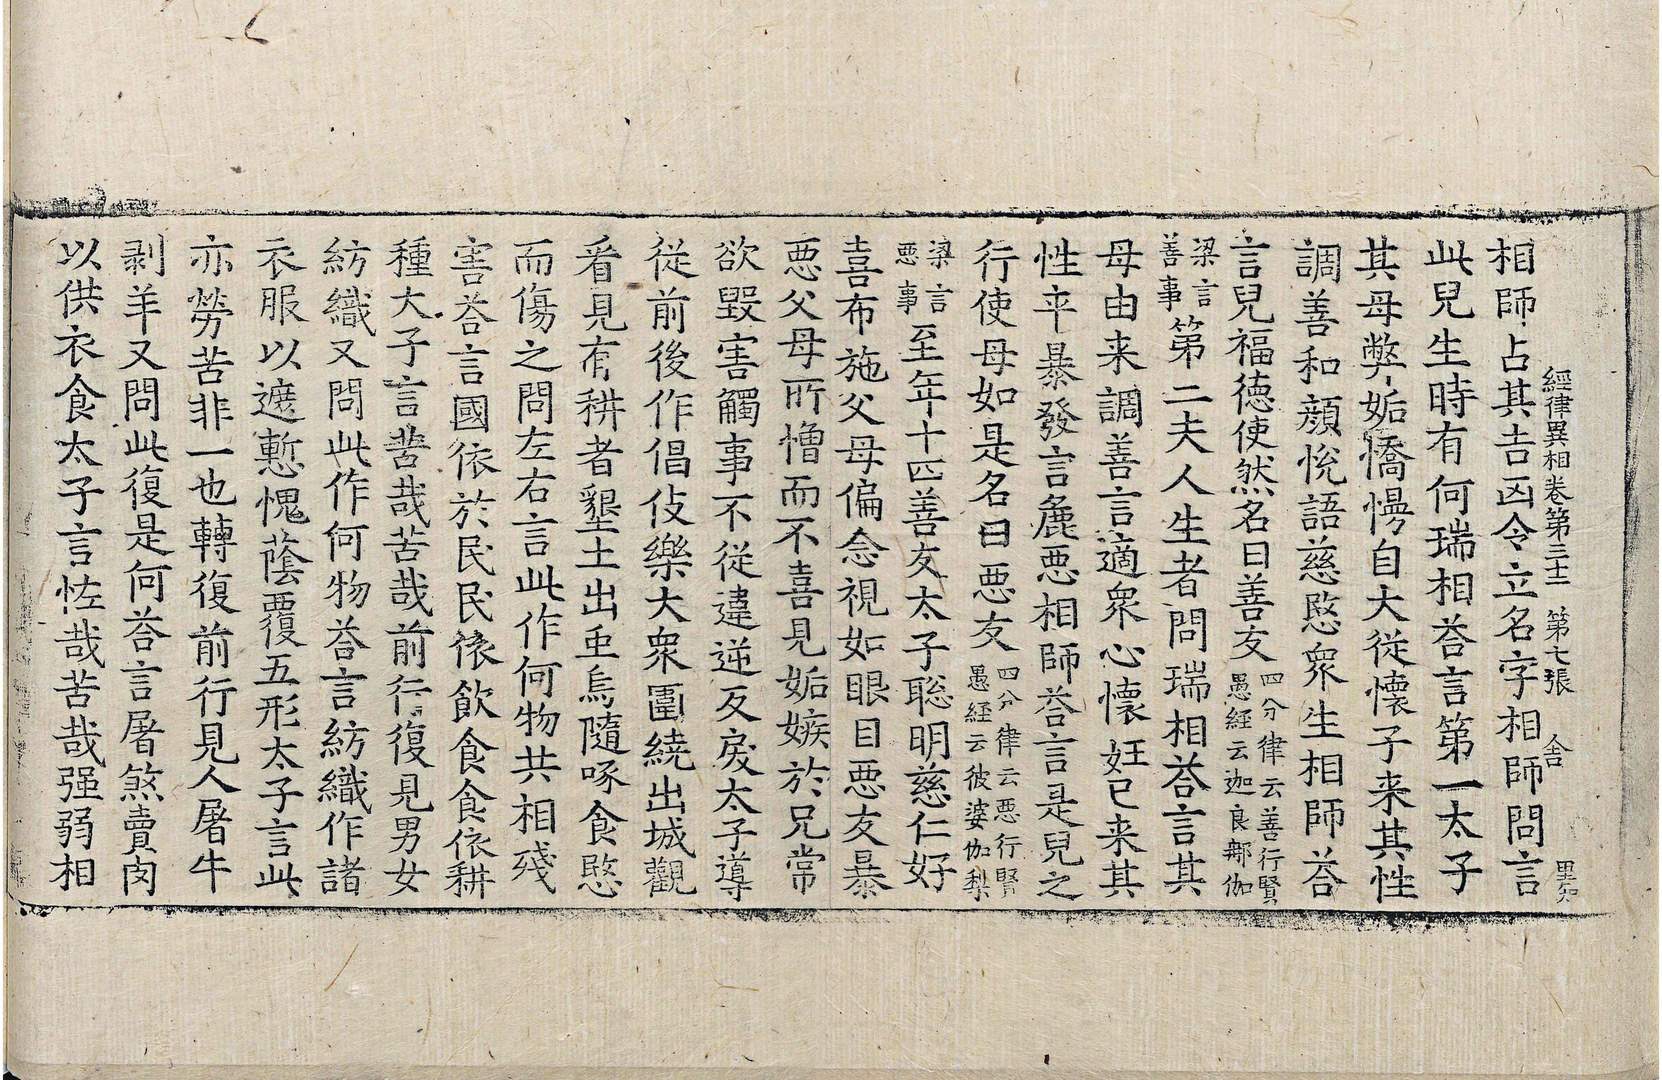 經律異相卷第三十二 第七張 舍
相師占其吉凶令立名字相師問言
此兒生時有何瑞相荅言第一太子
其母弊妬憍慢自大從懷子来其性
調善和顔恱語慈愍衆生相師荅
言兒福德使然名曰善友四分律云善行賢愚經云迦良那伽
梁言善事第二夫人生者問瑞相荅言其
母由来調善言適衆心懷妊已来其
性卒暴發言麁悪相師荅言是兒之
行使母如是名曰悪友四分律云悪行賢愚經云彼婆伽梨
梁言悪事至年十四善友太子聡明慈仁好
喜布施父母偏念視如眼目悪友暴
悪父母所憎而不喜見妬嫉於兄常
欲毀害觸事不從違逆反戾太子導
從前後作倡伎樂大衆圍繞出城觀
看見有耕者墾土出虫烏隨啄食愍
而傷之問左右言此作何物共相殘
害荅言國依於民民依飲食食依耕
種大子言苦哉苦哉前行復見男女
紡織又問此作何物荅言紡織作諸
衣服以遮慙愧蔭覆五形太子言此
亦勞苦非一也轉復前行見人屠牛
剥羊又問此復是何荅言屠煞賣肉
以供衣食太子言恠哉苦哉强弱相